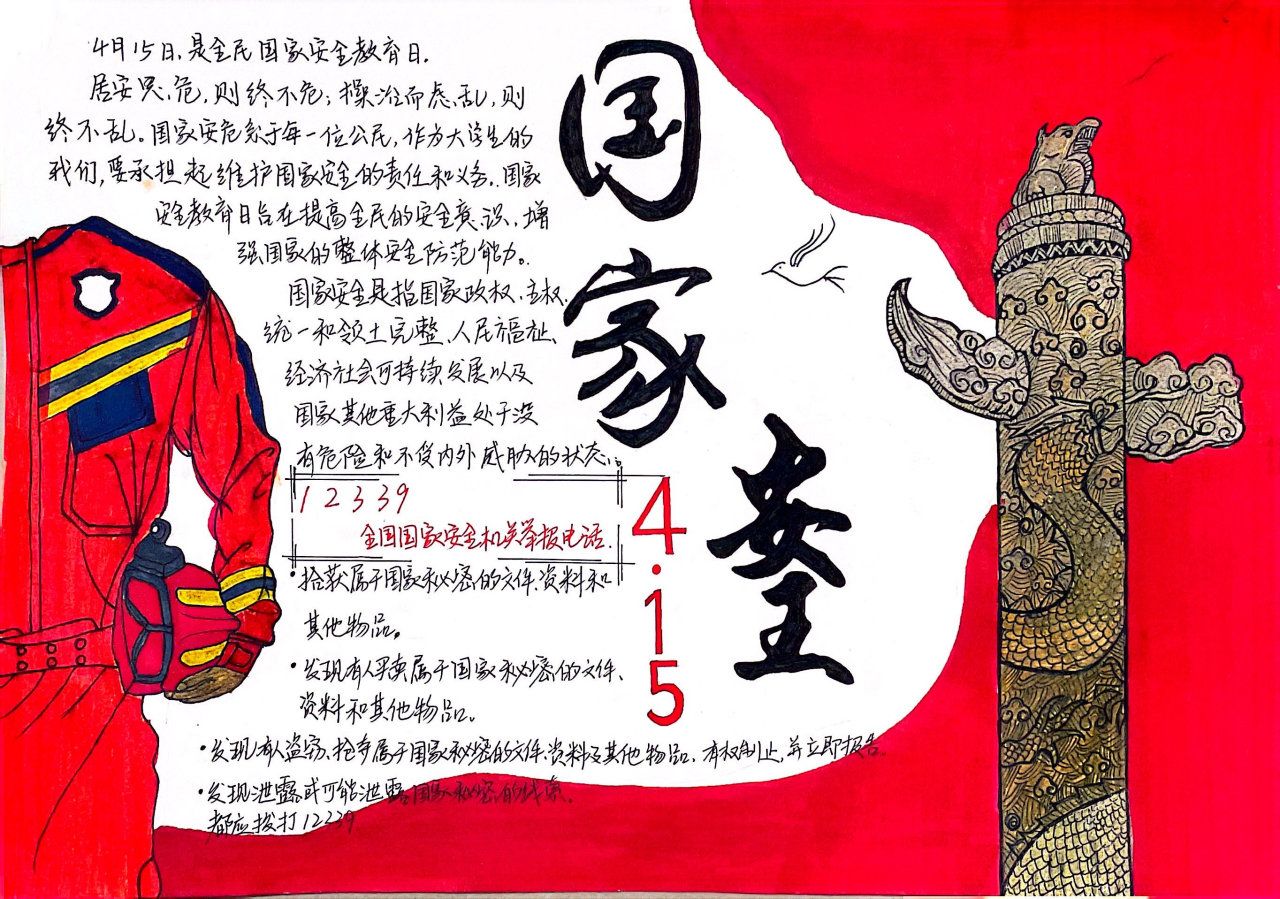 4月15日,是全民国家安全教育日.
居安思危,则终不危;操治而虑乱,则
终不乱。国家安危系于每一位公民,作为大学生的
我们,要承担起维护国家安全的责任和义务.国家
安全教育日旨在提高全民的安全意识、增
强国家的整体安全防范能力。
国家安全是指国家政权、主权、
统一和领土完整、人民福祉、
经济社会可持续发展以及
国家其他重大利益处于没
有危险和不受内外威胁的状态。
12339
全国国家安全机关举报电话.
·拾获属于国家秘密的文件、资料和
其他物品。
·发现有人买卖属于国家秘密的文件、
资料和其他物品。
·发现有人盗窃、抢夺属于国家秘密的文件、资料及其他物品,有权制止,并立即报告.
·发现泄露或可能泄露国家秘密的线索。
都应拨打12339
国
家
安
全
4.15